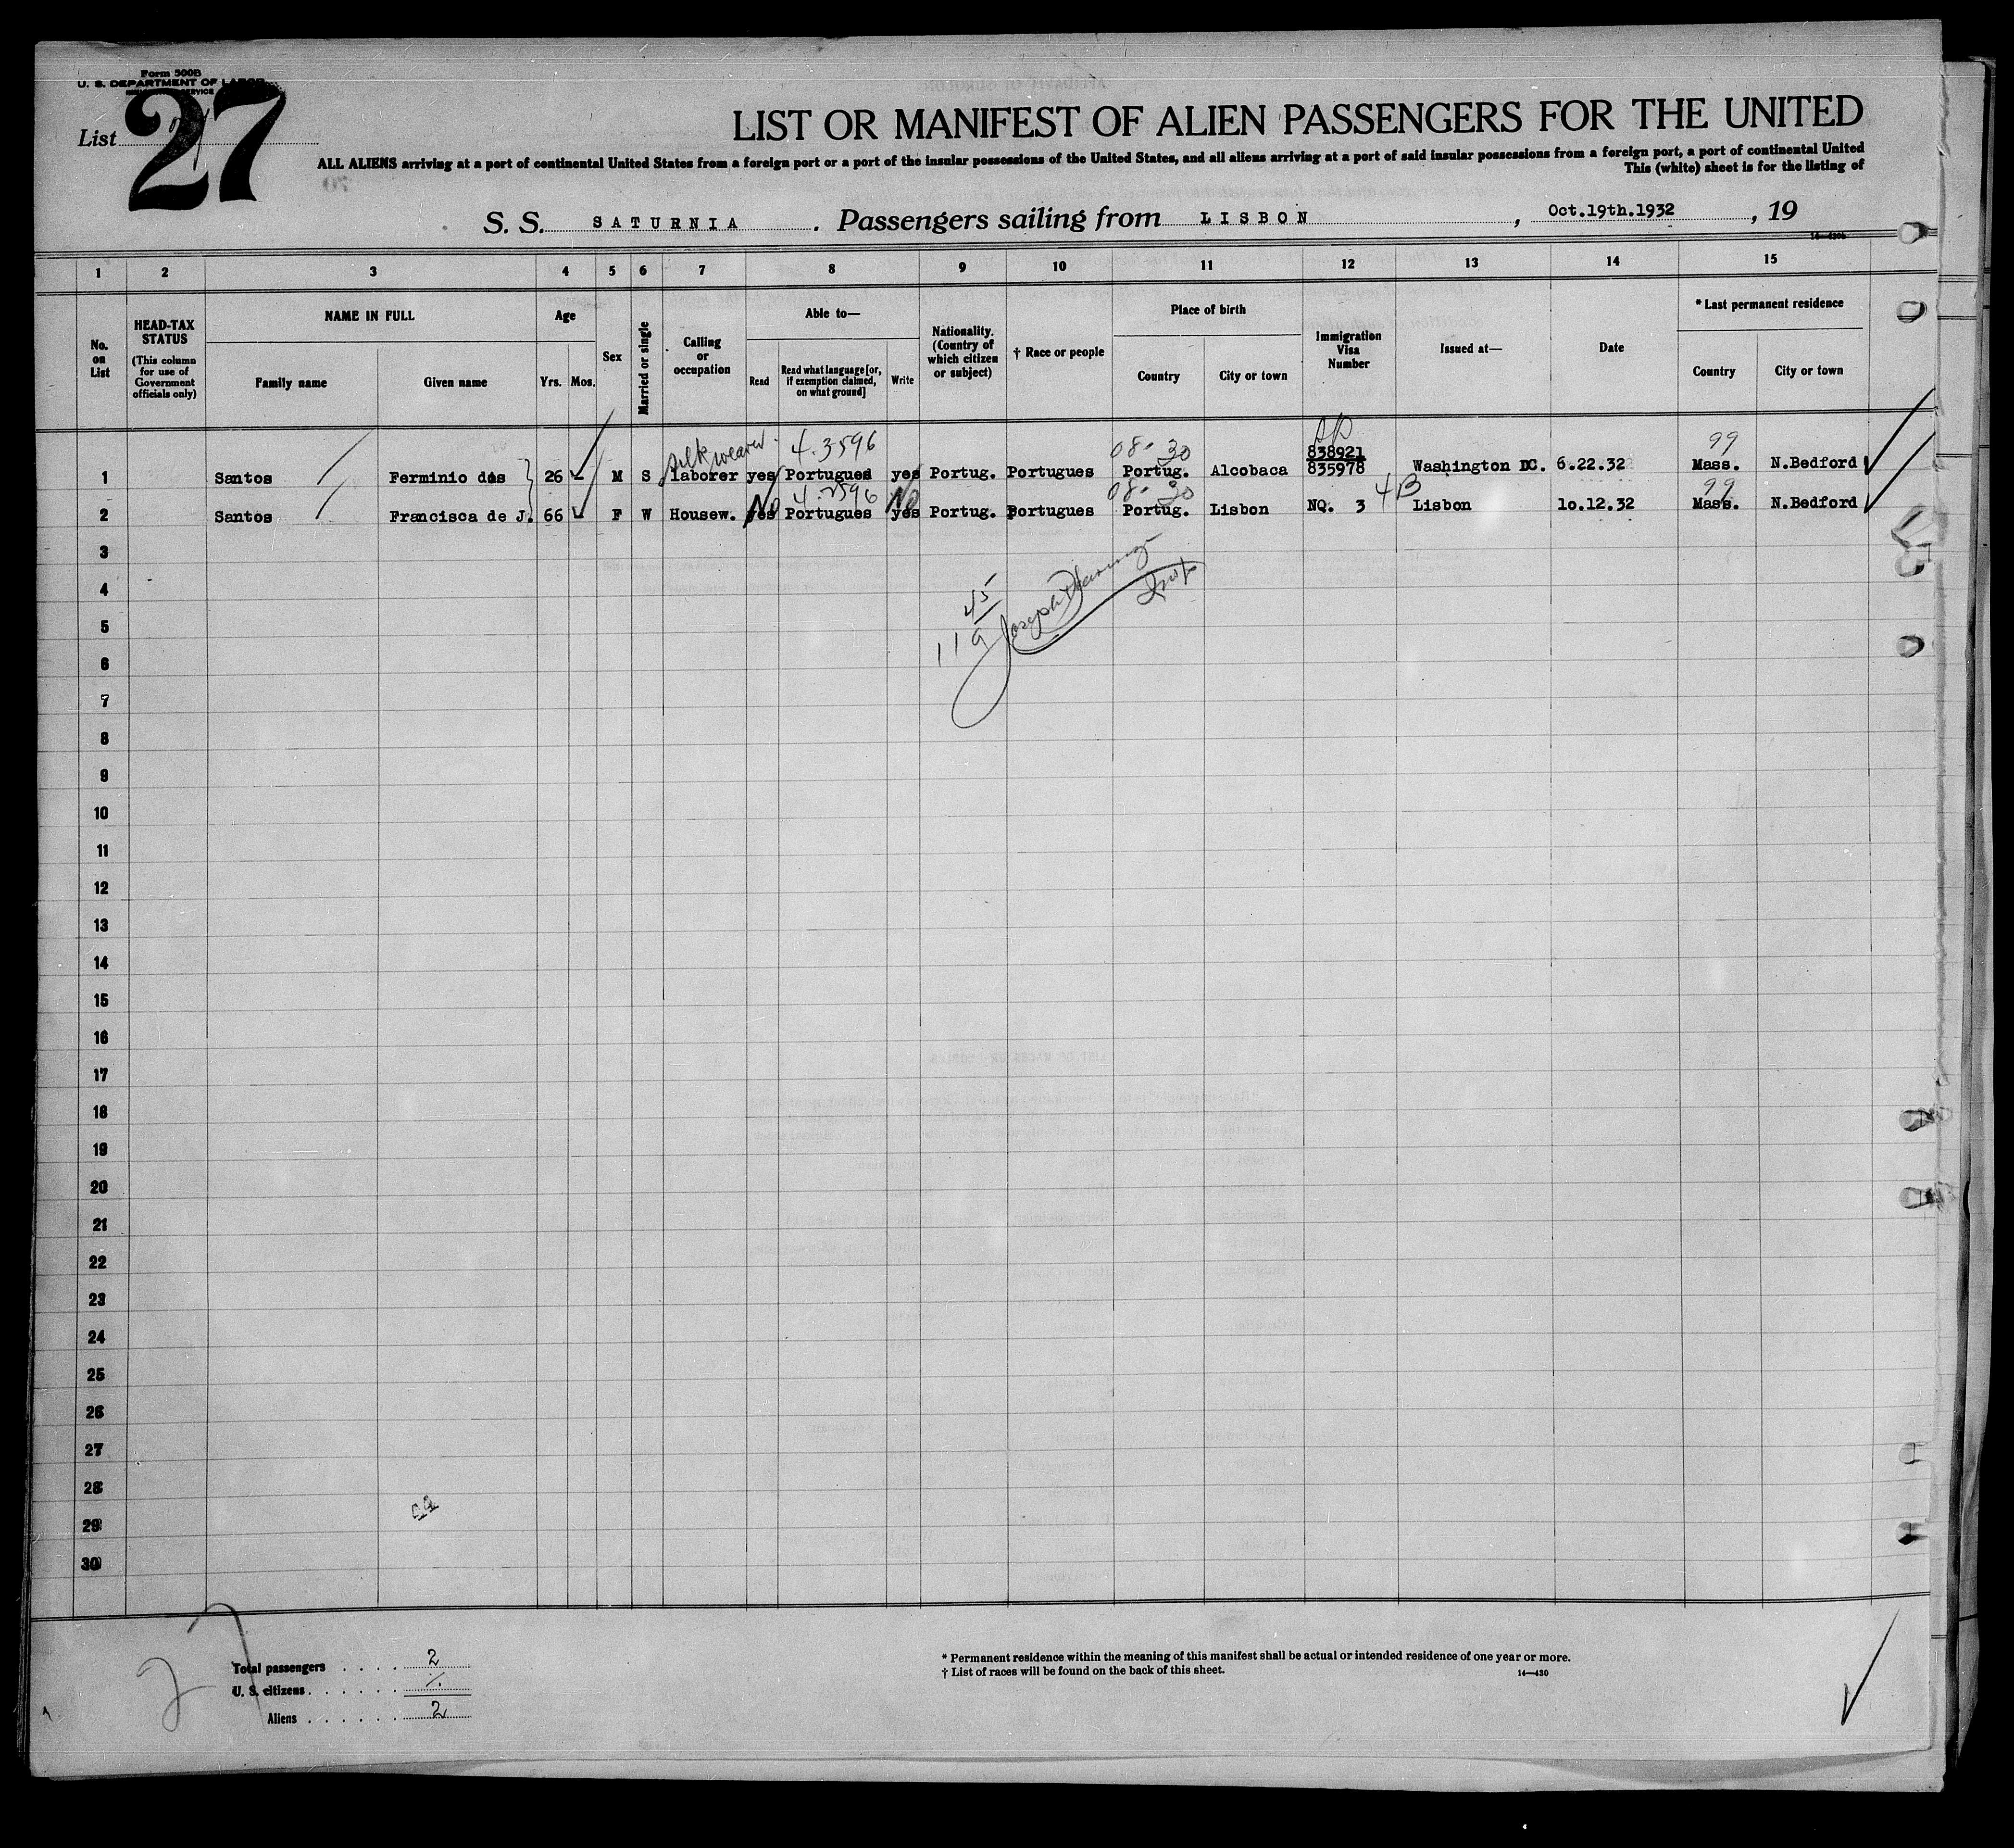 Form 500B
U. S. DEPARTMENT OF LABOR
List 27
LIST OR MANIFEST OF ALIEN PASSENGERS FOR THE UNITED
ALL ALIENS arriving at a port of continental United States from a foreign port or a port of the insular possessions of the United States, and all aliens arriving at a port of said insular possessions from a foreign port, a port of continental United
This (white) sheet is for the listing of
S. S. SATURNIA . Passengers sailing from LISBON , Oct.19th.1932 , 19
1 2 3 4 5 6 7 8 9 10 11 12 13 14 15
No. on List
HEAD-TAX STATUS
(This column for use of Government officials only)
NAME IN FULL
Family name
Given name
Age
Yrs. Mos.
Sex
Married or single
Calling or occupation
Able to—
Read
Read what language [or, if exemption claimed, on what ground]
Write
Nationality. (Country of which citizen or subject)
† Race or people
Place of birth
Country
City or town
Immigration Visa Number
Issued at—
Date
* Last permanent residence
Country
City or town
silk weaver 4.3596 08.30 838921 99
1 Santos Ferminio dos 26 M S laborer yes Portugues yes Portug. Portugues Portug. Alcobaca 835978 Washington DC. 6.22.32 Mass. N.Bedford
No No 4B 99
2 Santos Francisca de J. 66 F W Housew. yes Portugues yes Portug. Portugues Portug. Lisbon NQ. 3 Lisbon 10.12.32 Mass. N.Bedford
3
4
45
5
119 Joseph
6
7
8
9
10
11
12
13
14
15
16
17
18
19
20
21
22
23
24
25
26
27
28
29
30
27
Total passengers . . . . 2
U. S. citizens . . . . . .
Aliens . . . . . . 2
* Permanent residence within the meaning of this manifest shall be actual or intended residence of one year or more.
† List of races will be found on the back of this sheet.
14—430